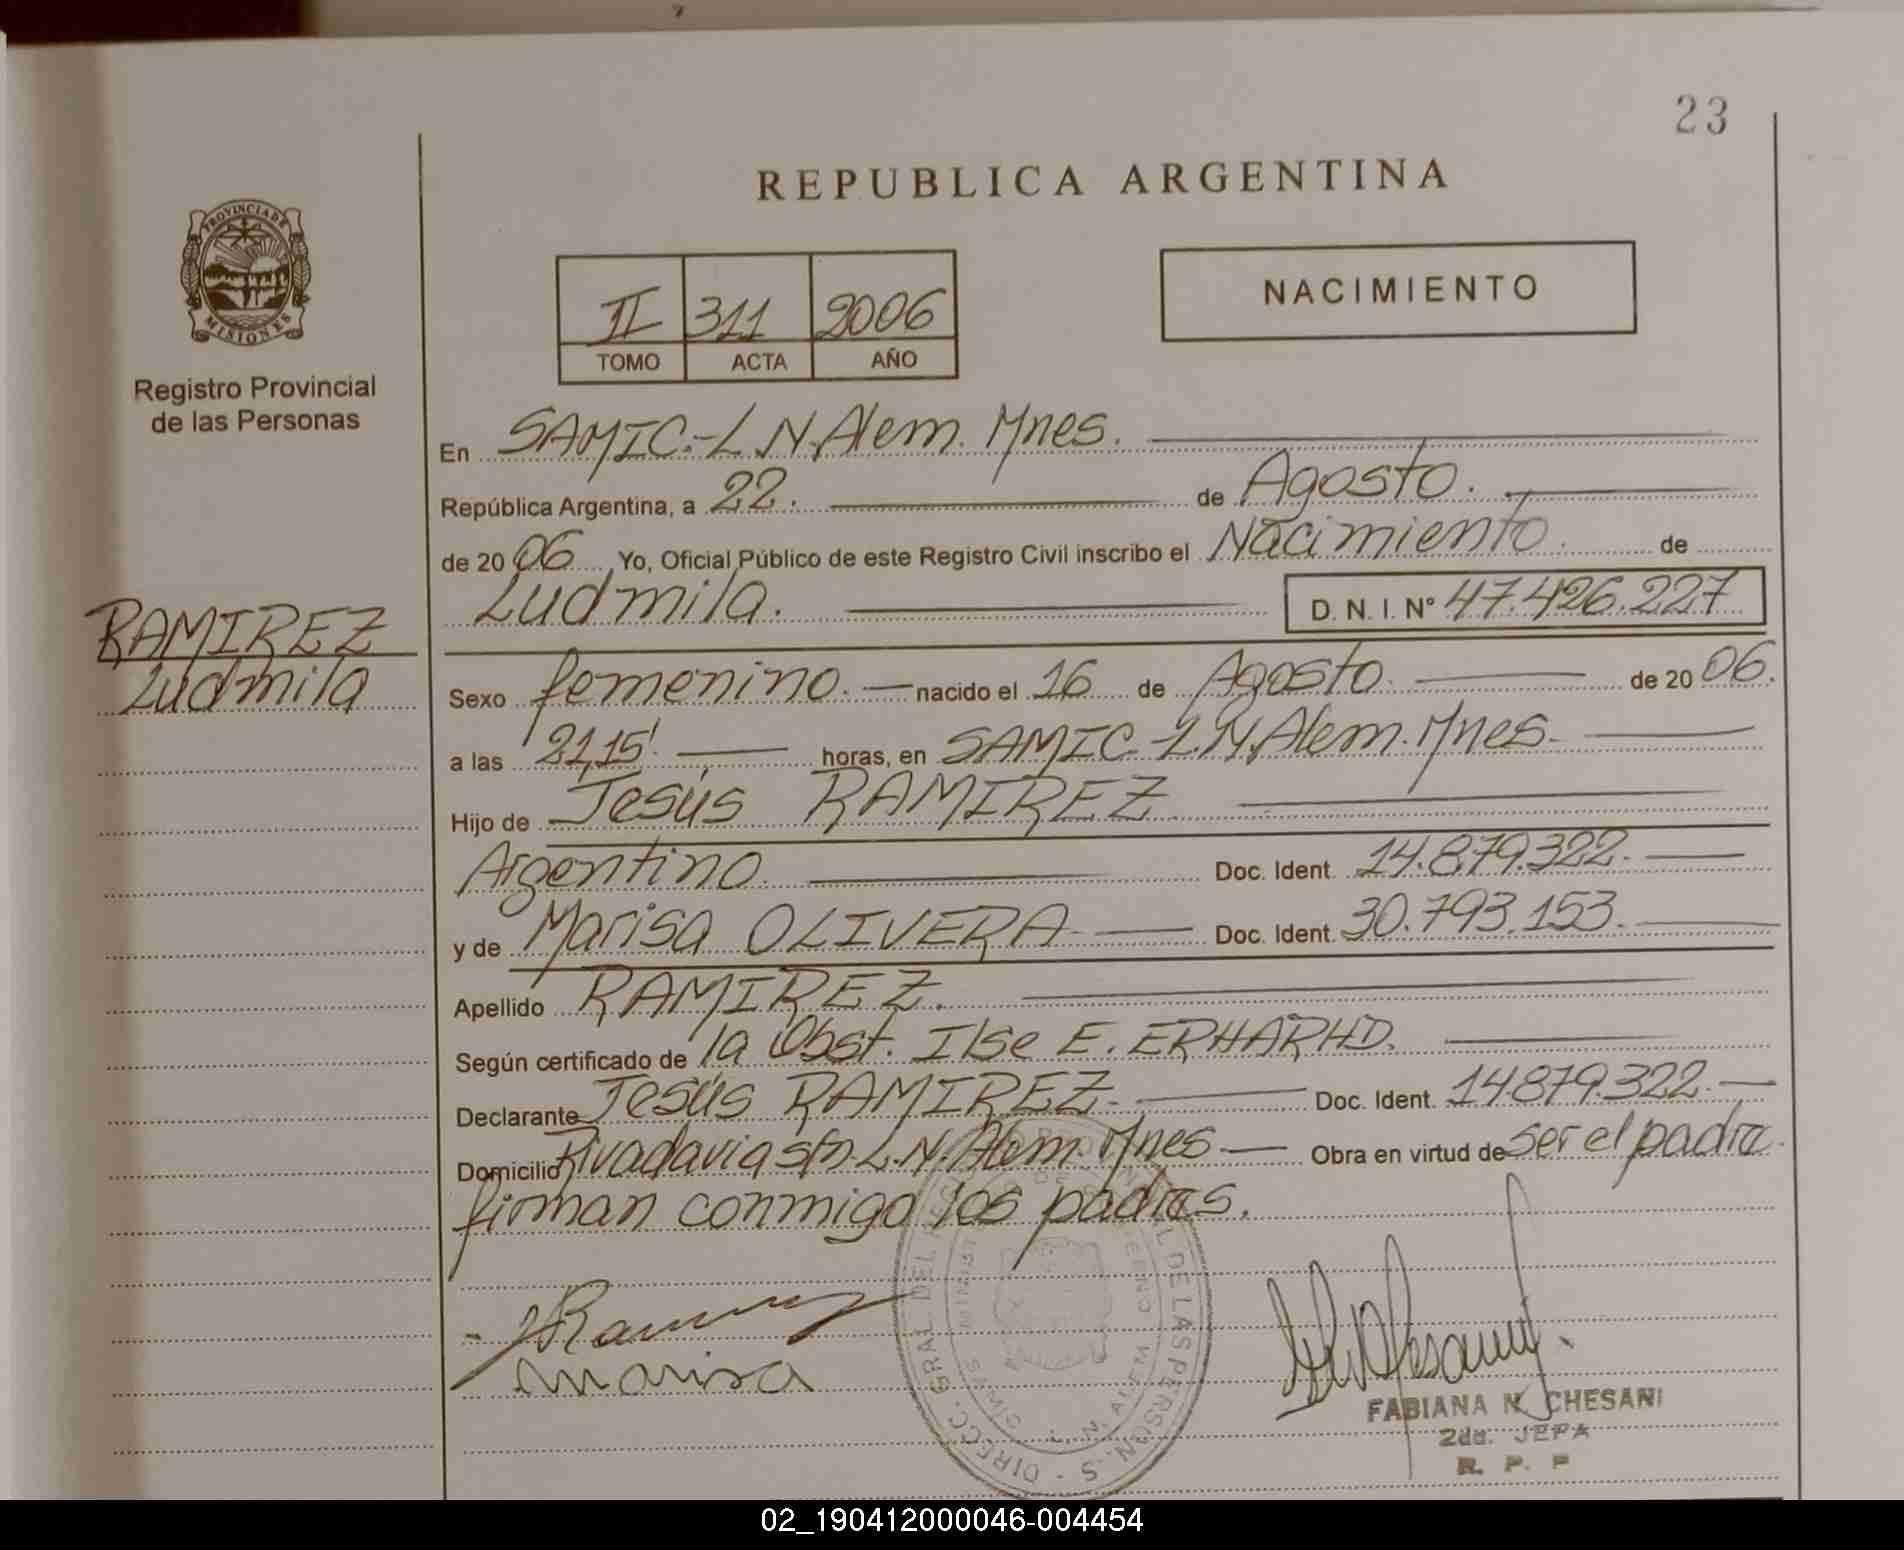 23
REPUBLICA ARGENTINA
PROVINCIA DE
MISIONES
Registro Provincial
de las Personas
II 311 2006
TOMO ACTA AÑO
NACIMIENTO
En SAMIC.-L.N.Alem. Mnes.
República Argentina, a 22. de Agosto.
de 2006 Yo, Oficial Público de este Registro Civil inscribo el Nacimiento. de
Ludmila. D. N. I. Nº 47.426.227
RAMIREZ
Ludmila
Sexo femenino. nacido el 16 de Agosto. de 2006.
a las 21,15'. horas, en SAMIC.-L.N.Alem. Mnes.
Hijo de Jesús RAMIREZ.
Argentino. Doc. Ident. 14.879.322.
y de Marisa OLIVERA Doc. Ident. 30.793.153.
Apellido RAMIREZ.
Según certificado de la Obst. Ilse E. ERHARHD.
Declarante Jesús RAMIREZ. Doc. Ident. 14879.322.
Domicilio Rivadavia s/n. L.N. Alem. Mnes Obra en virtud de ser el padre.
firman conmigo los padres.
Marisa
DIRECC. GRAL. DEL DE LAS PERSONAS
L. N. ALEM
FABIANA N. CHESANI
2da. JEFA
R. P. P
02_190412000046-004454